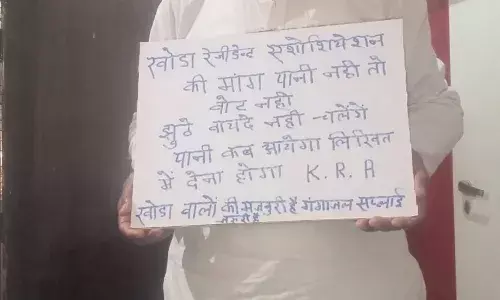 खोडा रेजीडेन्ट एशोशियेशन
की मांग पानी नही तो
वोट नही
झुठे वायदे नही चलेंगें
पानी कब आयेगा लिखित
में देना होगा K.R.A
खोडा वालों की मजबुरी है गंगाजल सप्लाई
जरूरी है